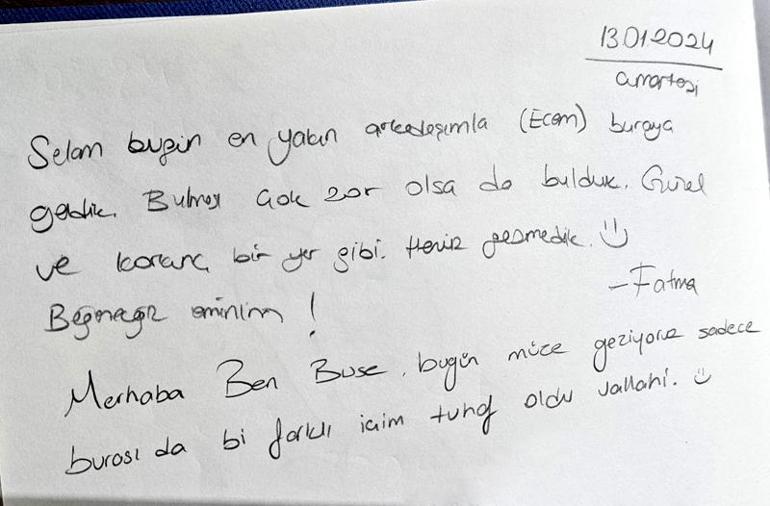 13.01.2024
Cumartesi
Selam bugün en yakın arkadaşımla (Ecem) buraya
geldik. Bulması çok zor olsa da bulduk. Güzel
ve korkunç bir yer gibi. Henüz gezmedik. :)
—Fatma
eminim !
Merhaba Ben Buse, bugün müze geziyoruz sadece
burası da bi farklı içim tuhaf oldu vallahi. :)